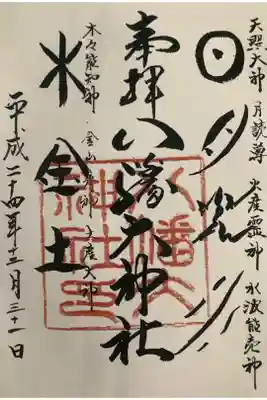 天照大神 月讀尊 火産霊神 水波能売神
日月火水
奉拝 八幡大神社
木々能知神・金山彦神 土産大神
木金土
平成二十四年十二月三十一日
八幡大神社印